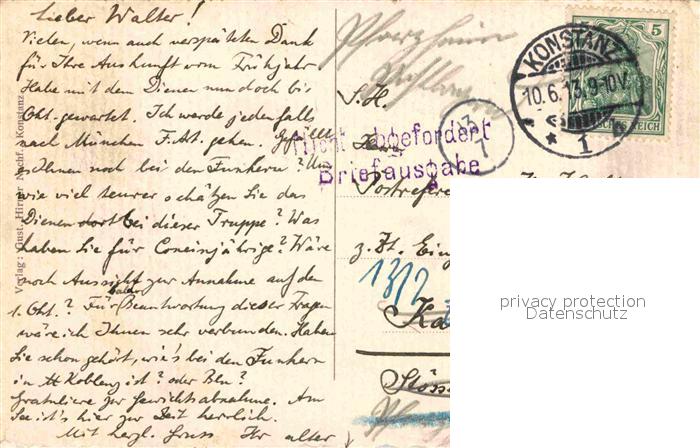 Lieber Walter!
Vielen, wenn auch verspäteten Dank
für Ihre Auskunft vom Frühjahr
Habe mit dem Dienen nun doch bis
Okt. gewartet. Ich werde jedenfalls
nach München F.Abt. gehen. Gefällt
es Ihnen noch bei den Funkern? Und
wie viel teurer schätzen Sie das
Dienen dort bei dieser Truppe? Was
haben Sie für Coneinjährige? Wäre
noch Aussicht zur Annahme auf den
1. Okt.? Für baldige Beantwortung dieser Fragen
wäre ich Ihnen sehr verbunden. Haben
Sie schon gehört, wie's bei den Funkern
in Koblenz ist? oder Bln?
Gratuliere zur Gewichtsabnahme. Am
See ist's hier zur Zeit herrlich.
Mit herzl. Gruss Ihr alter
Verlag: Gust. Hirner Nachf. Konstanz
Pforzheim
S.H.
Herrn
Postrefere
z. Zt. Einj
13/2
Ka
Nicht abgefordert
Briefausgabe
KONSTANZ
10.6.13.9-10V.
* 1 *
5
REICH
privacy protection
Datenschutz